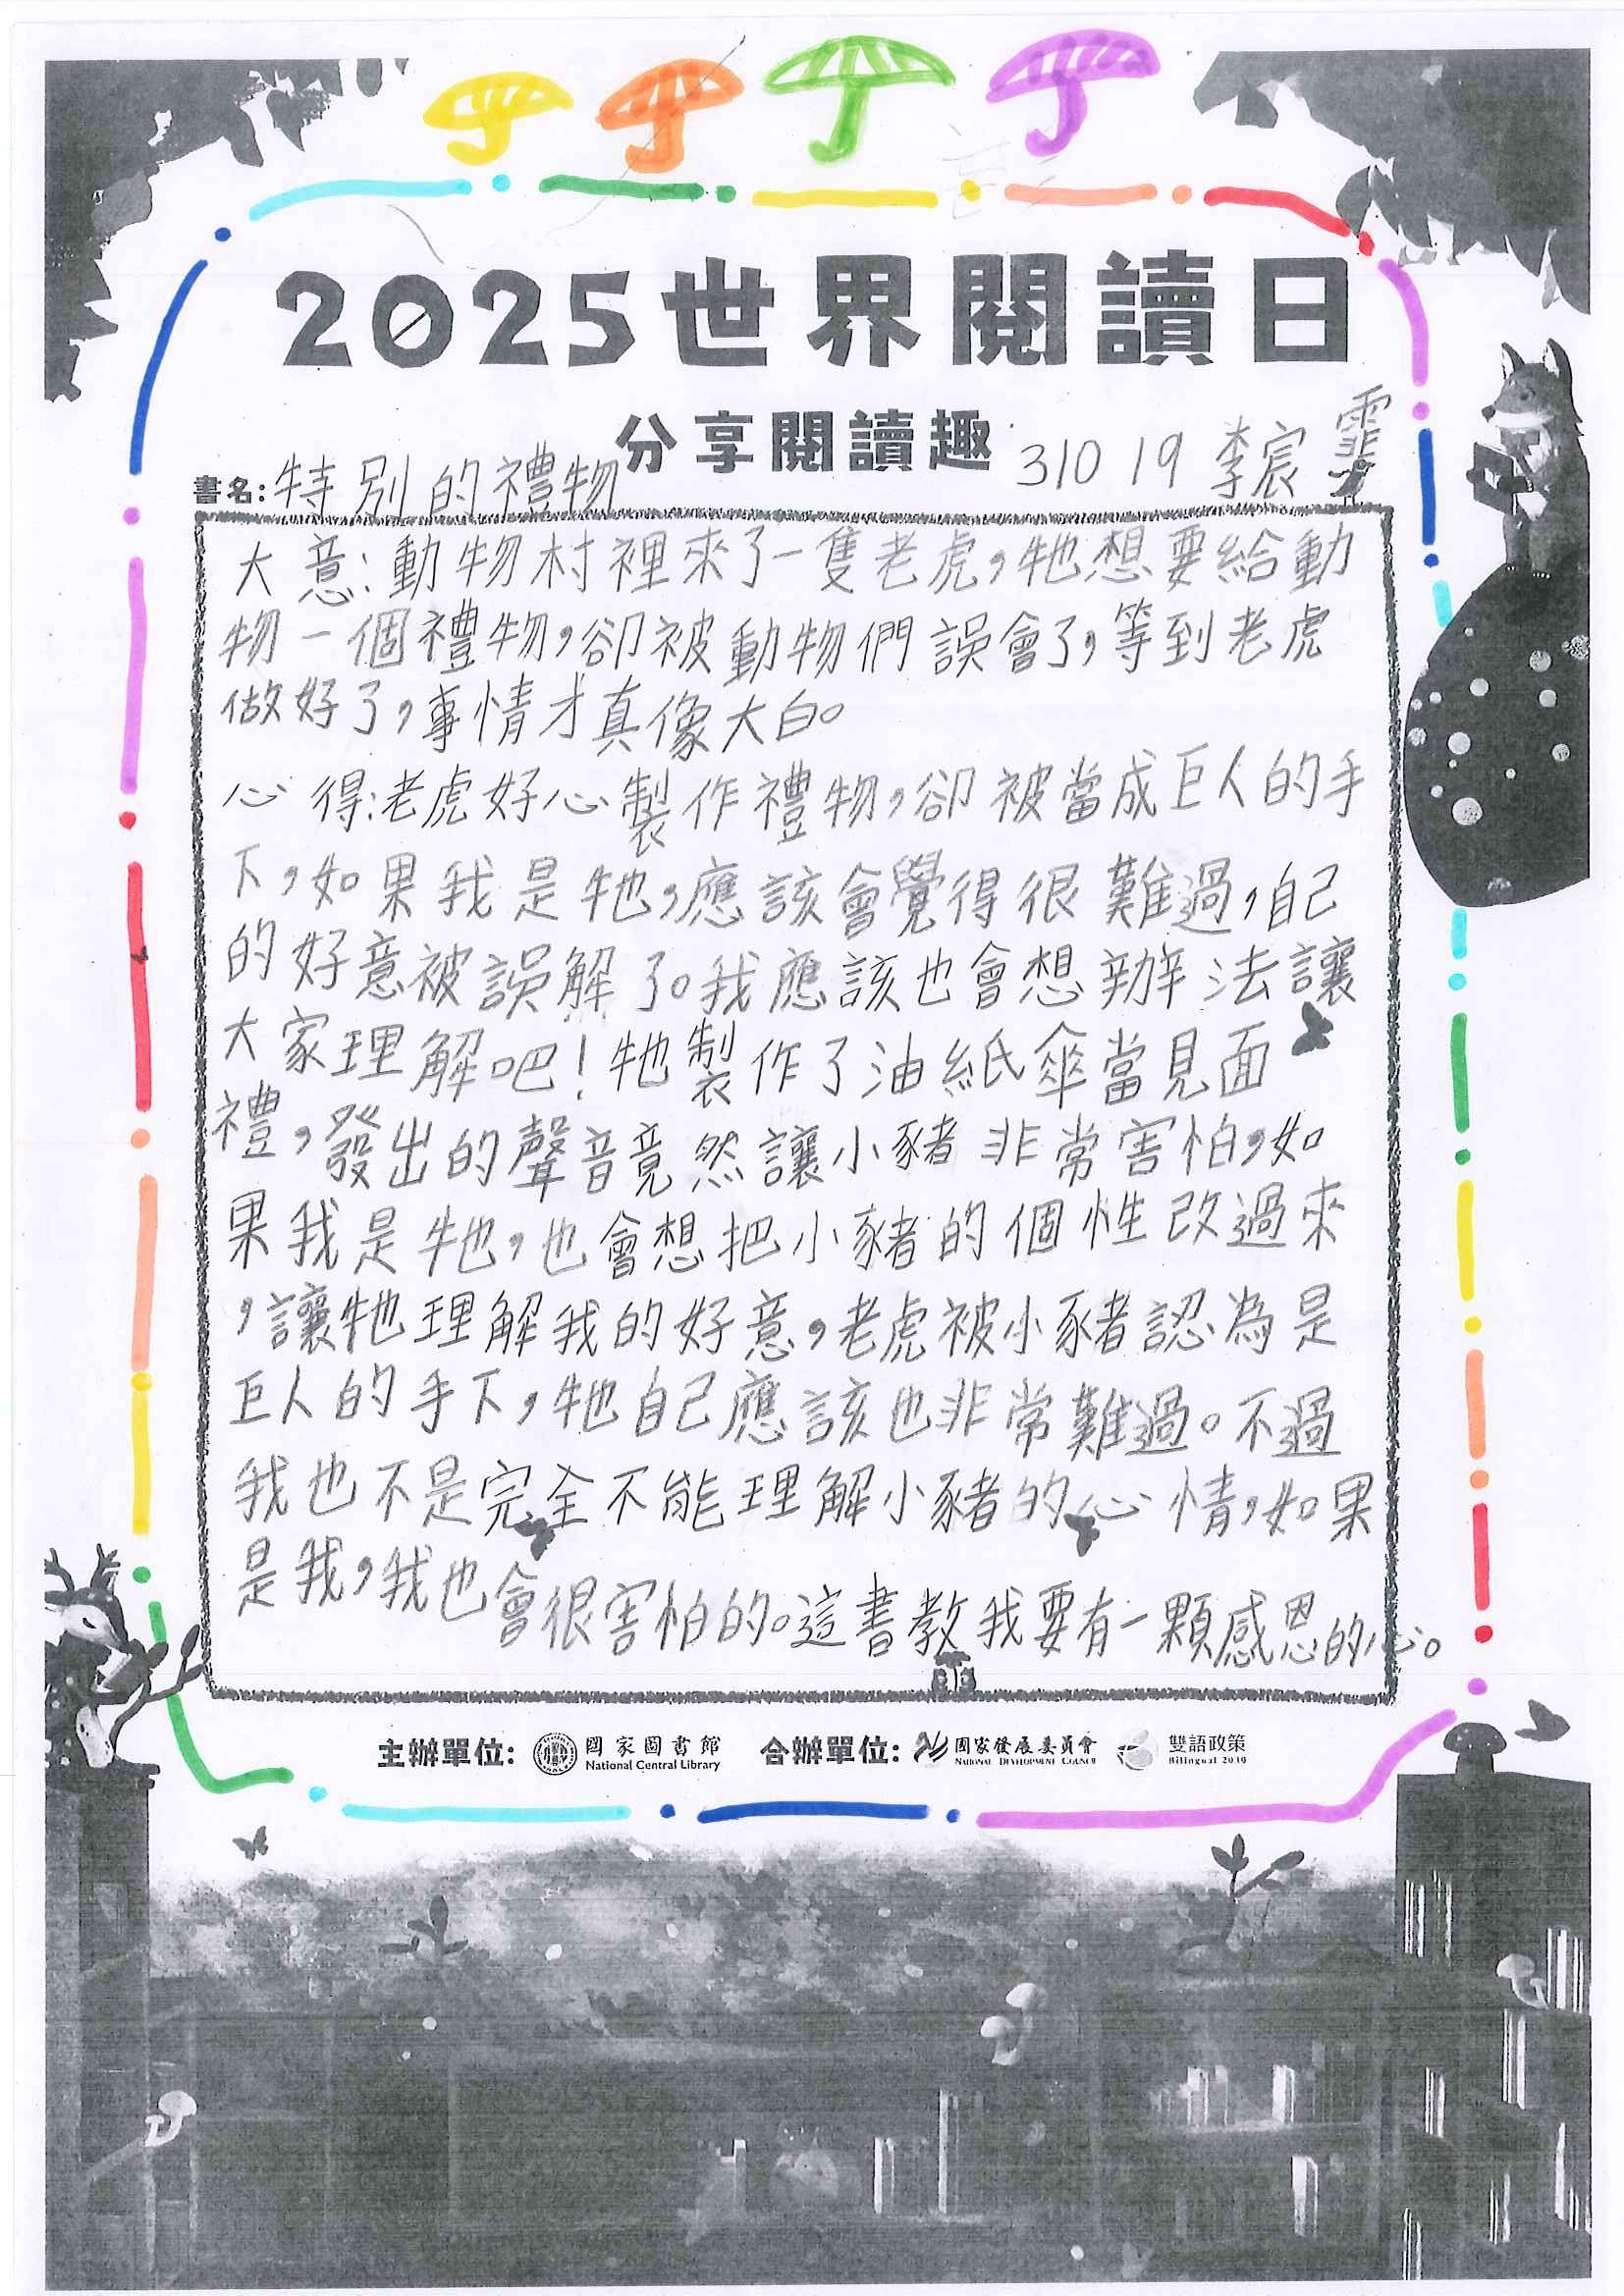 2025世界閱讀日
分享閱讀趣
310 19 李宸霏
書名:特別的禮物
大意:動物村裡來了一隻老虎,牠想要給動
物一個禮物,卻被動物們誤會了,等到老虎
做好了,事情才真像大白。
心得:老虎好心製作禮物,卻被當成巨人的手
下,如果我是牠,應該會覺得很難過,自己
的好意被誤解了。我應該也會想辦法讓
大家理解吧!牠製作了油紙傘當見面
禮,發出的聲音竟然讓小豬非常害怕,如
果我是牠,也會想把小豬的個性改過來
,讓牠理解我的好意,老虎被小豬認為是
巨人的手下,牠自己應該也非常難過。不過
我也不是完全不能理解小豬的心情,如果
是我,我也會很害怕的。這書教我要有一顆感恩的心。
主辦單位: 國家圖書館 National Central Library 合辦單位: 國家發展委員會 NATIONAL DEVELOPMENT COUNCIL 雙語政策 Bilingual 2030